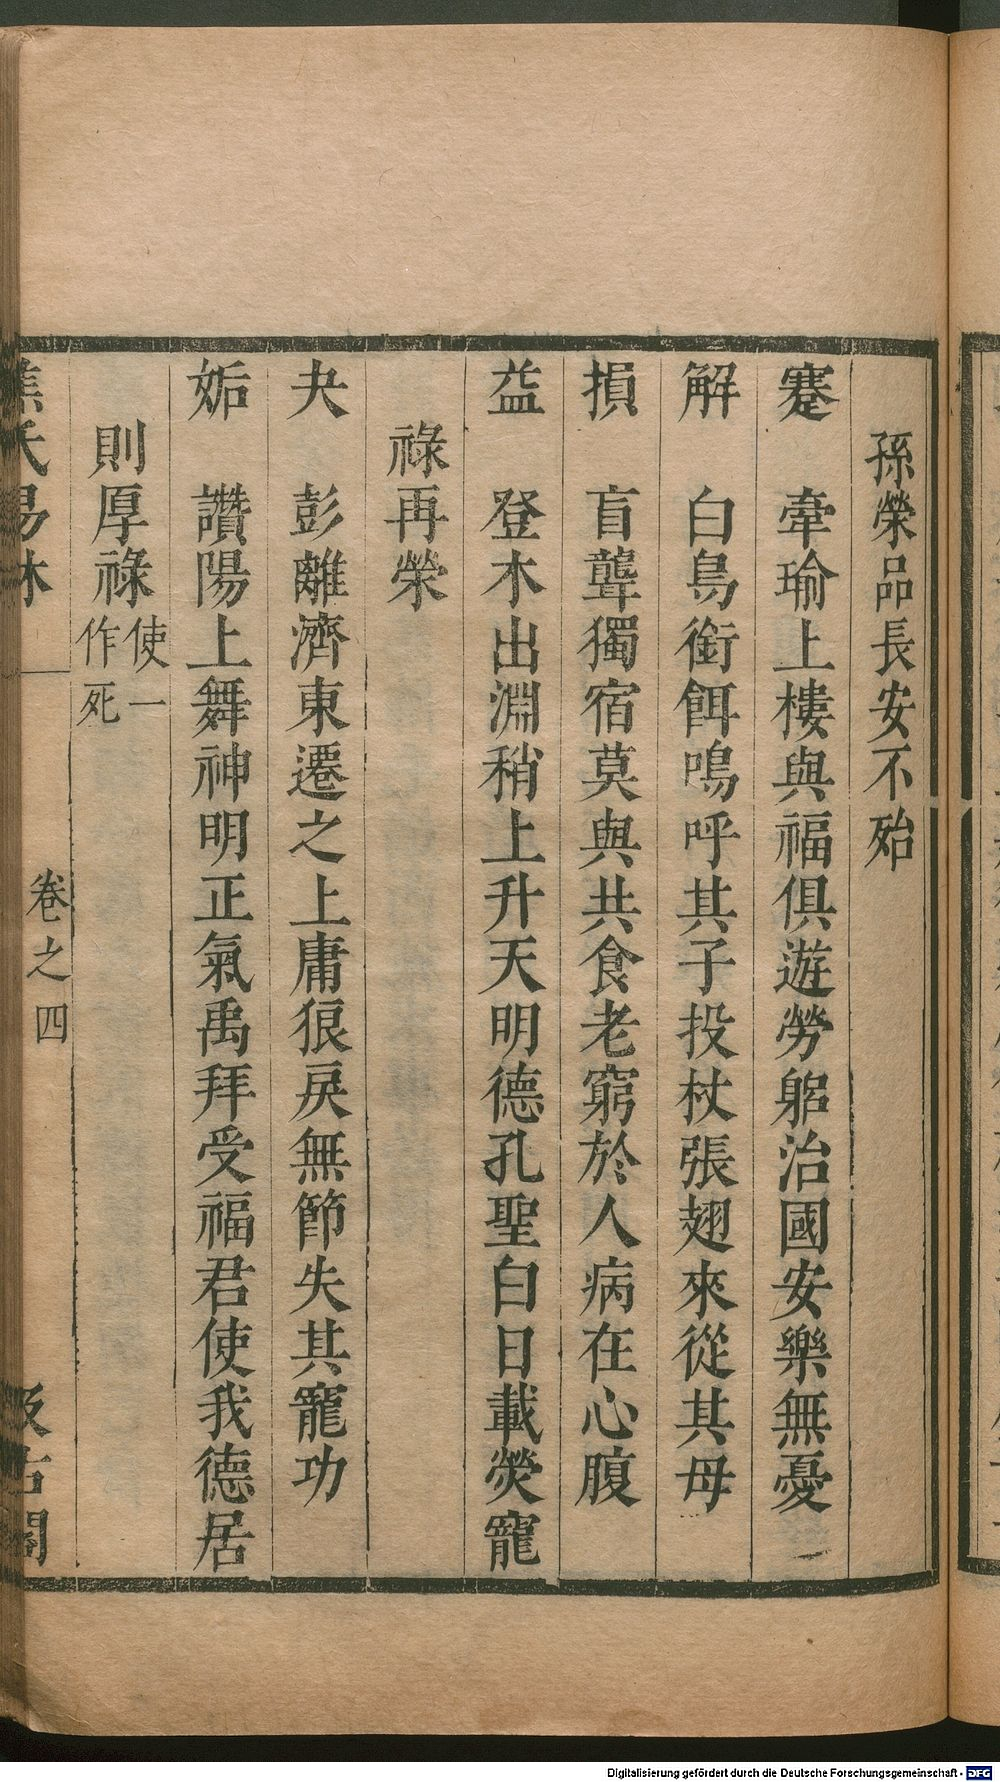 孫榮品長安不殆
蹇　牽瑜上樓與福俱遊勞躬治國安樂無憂
解　白鳥銜餌鳴呼其子投杖張翅來從其母
損　盲聾獨宿莫與共食老窮於人病在心腹
益　登木出淵稍上升天明德孔聖白日載熒寵
祿再榮
夬　彭離濟東遷之上庸狠戾無節失其寵功
姤　讚陽上舞神明正氣禹拜受福君使我德居
則厚祿使一作死
焦氏易林　卷之四　汲古閣
Digitalisierung gefördert durch die Deutsche Forschungsgemeinschaft - DFG